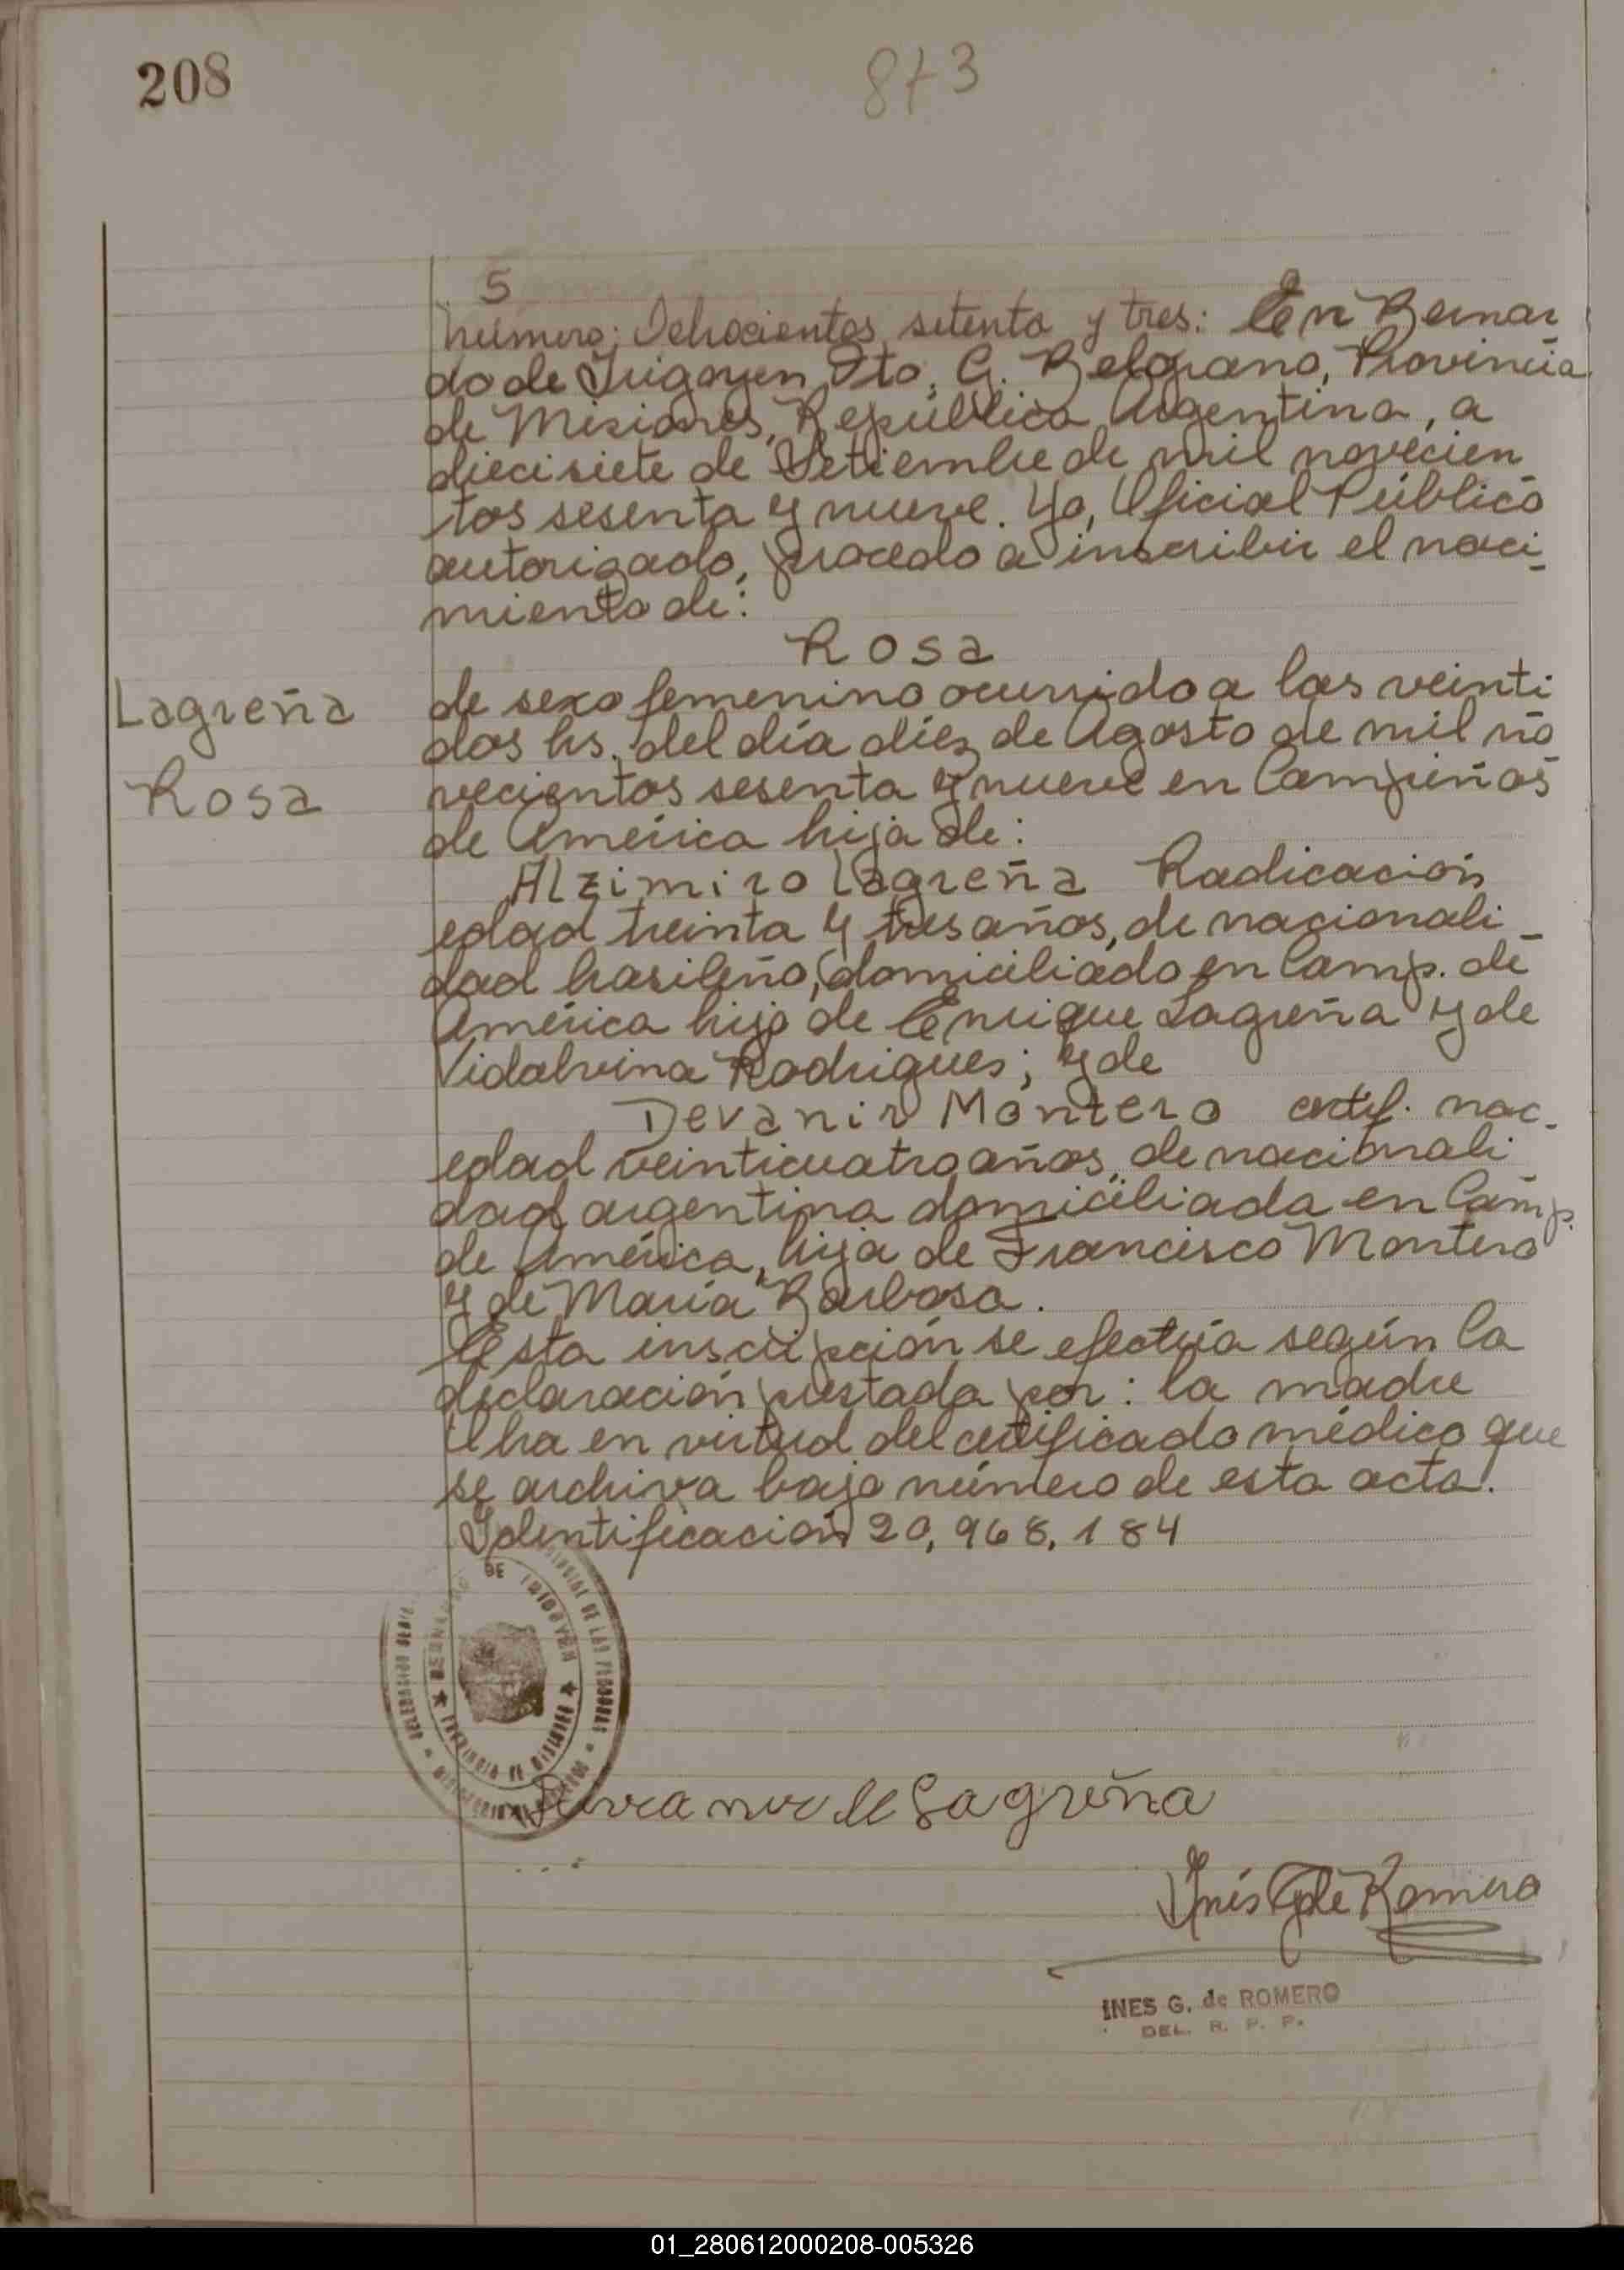 208
873
5
Número: Ochocientos setenta y tres: En Bernar
do de Irigoyen, Dto. G. Belgrano, Provincia
de Misiones, República Argentina, a
diecisiete de Setiembre de mil novecien
tos sesenta y nueve. Yo, Oficial Público
autorizado, procedo a inscribir el naci_
miento de:
Rosa
Lagreña
Rosa
de sexo femenino ocurrido a las veinti
dos hs. del día diez de Agosto de mil no
vecientos sesenta y nueve en Campiñas
de América hija de:
Alzimiro Lagreña Radicación
edad treinta y tres años, de nacionali_
dad brasileño, domiciliado en Camp. de
América hijo de Enrique Lagreña y de
Vidalvina Rodrigues; y de
Devanir Montero certif. nac.
edad veinticuatro años, de nacionali
dad argentina domiciliada en Camp.
de América, hija de Francisco Montero
y de María Barbosa.
Esta inscripción se efectúa según la
declaración prestada por: la madre
Uha en virtud del certificado médico que
se archiva bajo número de esta acta.
Identificación 20,968,184
BERNARDO DE IRIGOYEN
PROVINCIA DE MISIONES
de Lagreña
Inés G de Romero
INES G. de ROMERO
DEL. R. P. P.
01_280612000208-005326